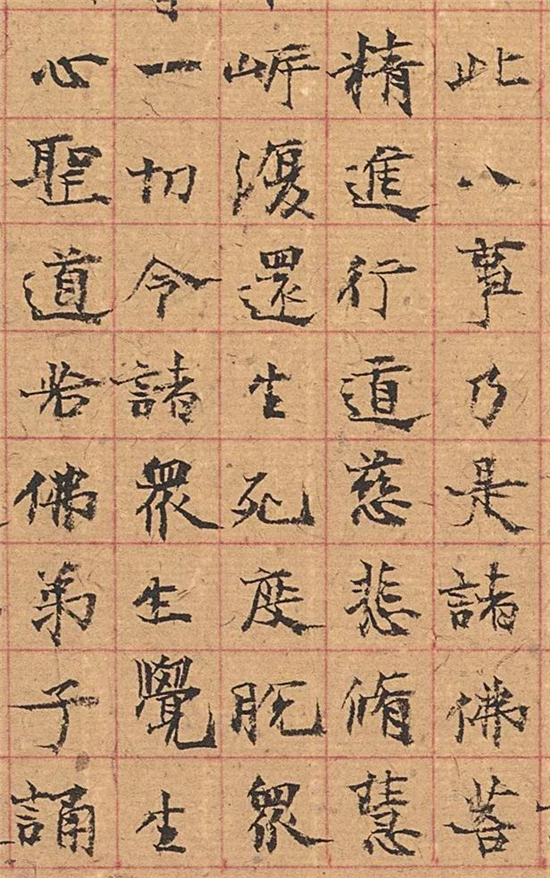 此八事乃是諸佛菩
精進行道慈悲脩慧
岸復還生死度脫眾
一切令諸眾生覺生
心聖道若佛弟子誦